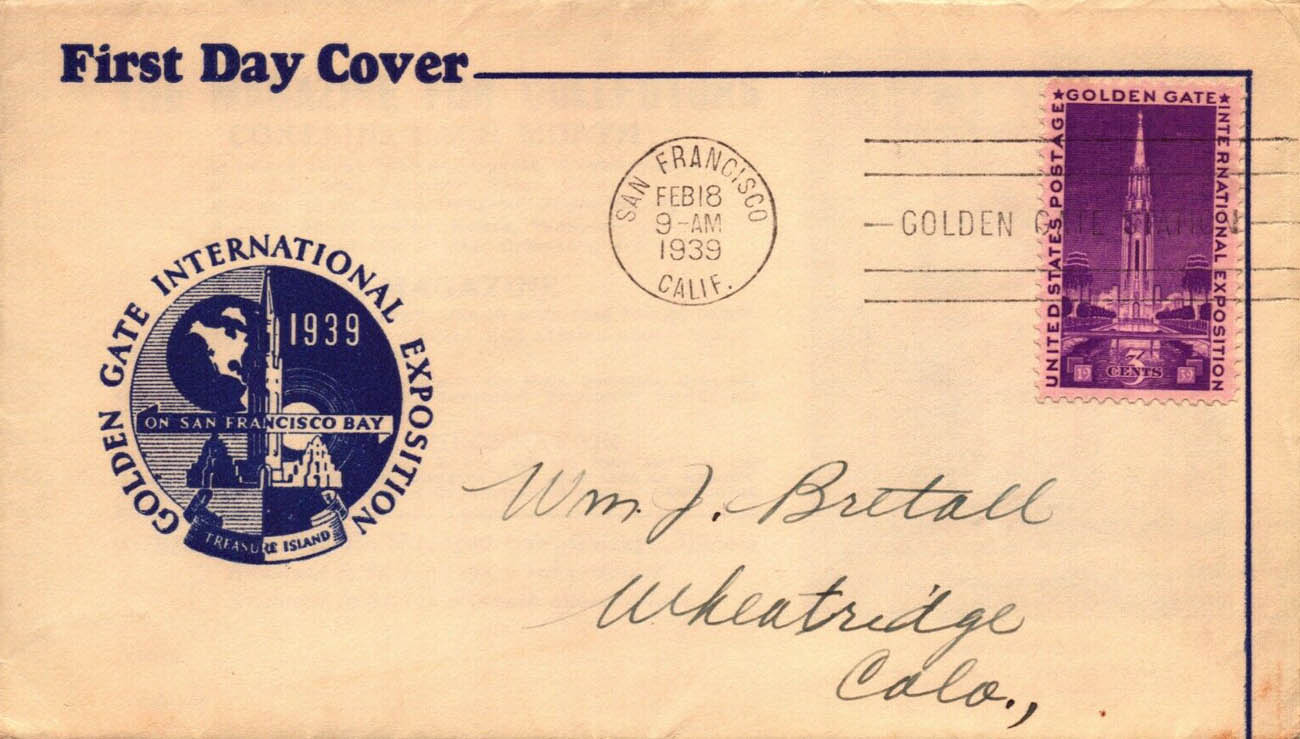 First Day Cover
SAN FRANCISCO
FEB 18
9-AM
1939
CALIF.
GOLDEN GATE STATION
★GOLDEN GATE★
UNITED STATES POSTAGE
INTERNATIONAL EXPOSITION
19 3 39
CENTS
GOLDEN GATE INTERNATIONAL EXPOSITION
1939
ON SAN FRANCISCO BAY
TREASURE ISLAND
Wm. J. Bretall
Wheatridge
Colo.,